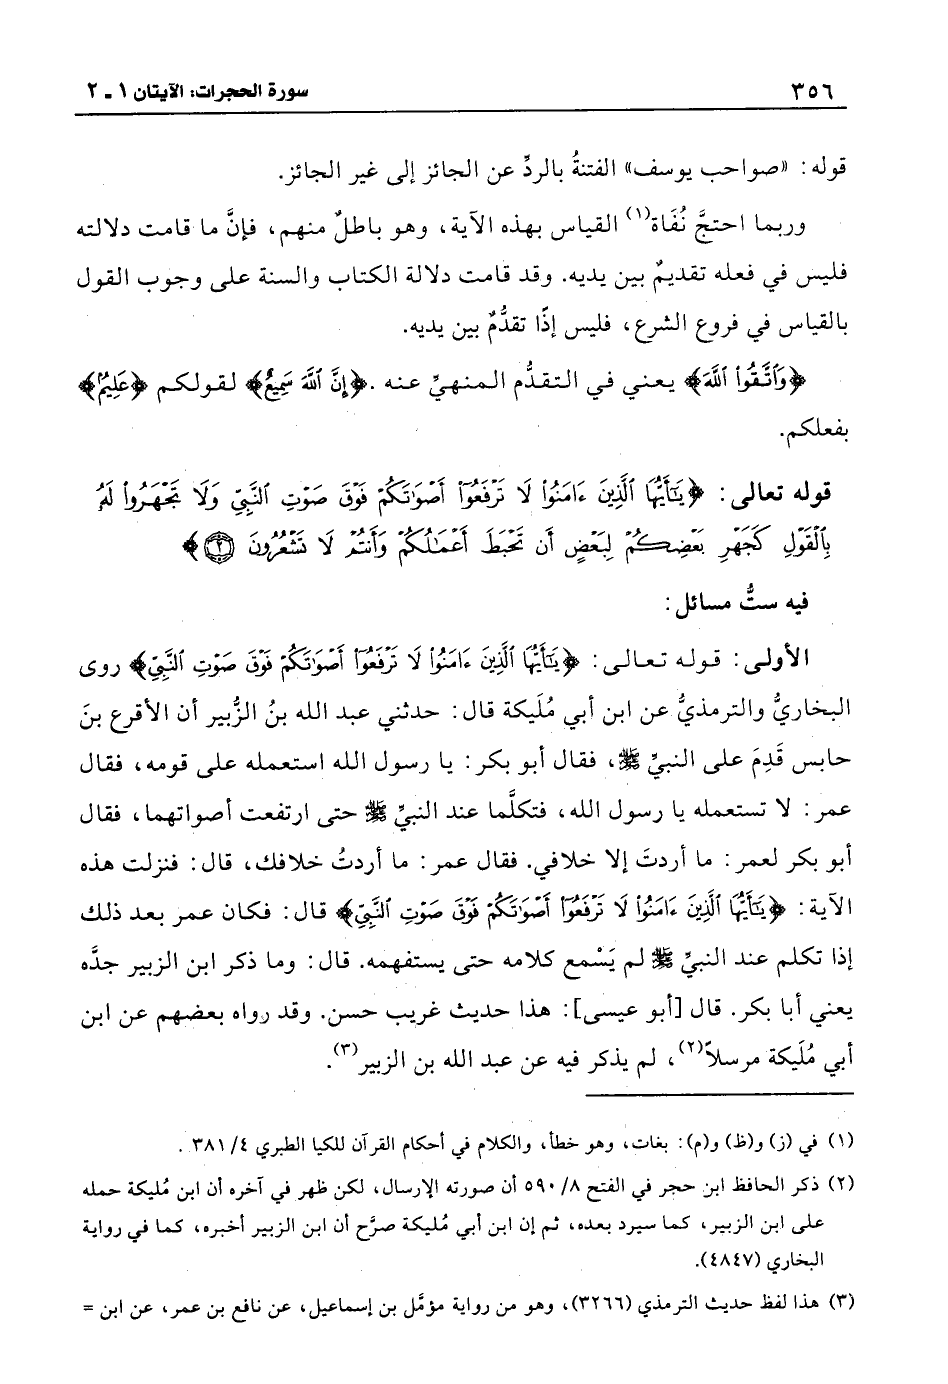 ٣٥٦ سورة الحجرات: الآيتان ١ ـ ٢
قوله: «صواحب يوسف» الفتنةُ بالردِّ عن الجائز إلى غير الجائز.
وربما احتجَّ نُفَاة(١) القياس بهذه الآية، وهو باطلٌ منهم، فإنَّ ما قامت دلالته
فليس في فعله تقديمٌ بين يديه. وقد قامت دلالة الكتاب والسنة على وجوب القول
بالقياس في فروع الشرع، فليس إذًا تقدُّمٌ بين يديه.
﴿وَٱتَّقُوا۟ ٱللَّهَ﴾ يعني في التقدُّم المنهيِّ عنه .﴿إِنَّ ٱللَّهَ سَمِيعٌ﴾ لقولكم ﴿عَلِيمٌ﴾
بفعلكم.
قوله تعالى: ﴿يَـٰٓأَيُّهَا ٱلَّذِينَ ءَامَنُوا۟ لَا تَرْفَعُوٓا۟ أَصْوَٰتَكُمْ فَوْقَ صَوْتِ ٱلنَّبِيِّ وَلَا تَجْهَرُوا۟ لَهُۥ
بِٱلْقَوْلِ كَجَهْرِ بَعْضِكُمْ لِبَعْضٍ أَن تَحْبَطَ أَعْمَـٰلُكُمْ وَأَنتُمْ لَا تَشْعُرُونَ ٢﴾
فيه ستُّ مسائل:
الأولى: قوله تعالى: ﴿يَـٰٓأَيُّهَا ٱلَّذِينَ ءَامَنُوا۟ لَا تَرْفَعُوٓا۟ أَصْوَٰتَكُمْ فَوْقَ صَوْتِ ٱلنَّبِيِّ﴾ روى
البخاريُّ والترمذيُّ عن ابن أبي مُلَيكة قال: حدثني عبد الله بنُ الزُّبير أن الأقرع بنَ
حابس قَدِمَ على النبيِّ ﷺ، فقال أبو بكر: يا رسول الله استعمله على قومه، فقال
عمر: لا تستعمله يا رسول الله، فتكلَّما عند النبيِّ ﷺ حتى ارتفعت أصواتهما، فقال
أبو بكر لعمر: ما أردتَ إلا خلافي. فقال عمر: ما أردتُ خلافك، قال: فنزلت هذه
الآية: ﴿يَـٰٓأَيُّهَا ٱلَّذِينَ ءَامَنُوا۟ لَا تَرْفَعُوٓا۟ أَصْوَٰتَكُمْ فَوْقَ صَوْتِ ٱلنَّبِيِّ﴾ قال: فكان عمر بعد ذلك
إذا تكلم عند النبيِّ ﷺ لم يَسْمع كلامه حتى يستفهمه. قال: وما ذكر ابن الزبير جدَّه
يعني أبا بكر. قال [أبو عيسى]: هذا حديث غريب حسن. وقد رواه بعضهم عن ابن
أبي مُلَيكة مرسلاً(٢)، لم يذكر فيه عن عبد الله بن الزبير(٣).
(١) في (ز) و(ظ) و(م): بغات، وهو خطأ، والكلام في أحكام القرآن للكيا الطبري ٤/ ٣٨١ .
(٢) ذكر الحافظ ابن حجر في الفتح ٨/ ٥٩٠ أن صورته الإرسال، لكن ظهر في آخره أن ابن مُليكة حمله
على ابن الزبير، كما سيرد بعده، ثم إن ابن أبي مُليكة صرَّح أن ابن الزبير أخبره، كما في رواية
البخاري (٤٨٤٧).
(٣) هذا لفظ حديث الترمذي (٣٢٦٦)، وهو من رواية مؤمَّل بن إسماعيل، عن نافع بن عمر، عن ابن =